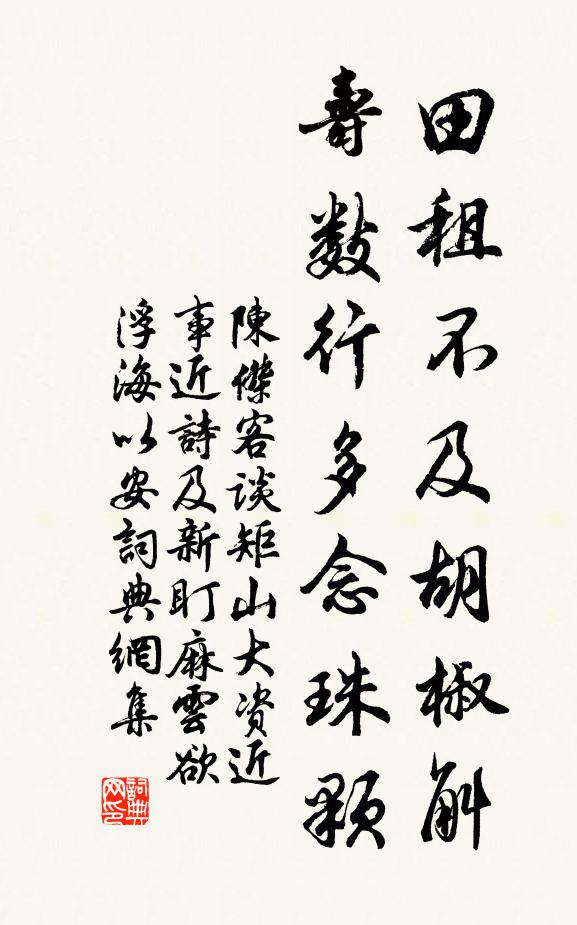 田租不及胡椒斛
壽数行多念珠顆
陳傑客談矩山大資近
事近詩及新盯麻雲欲
浮海以安詞典網集
詞典网印